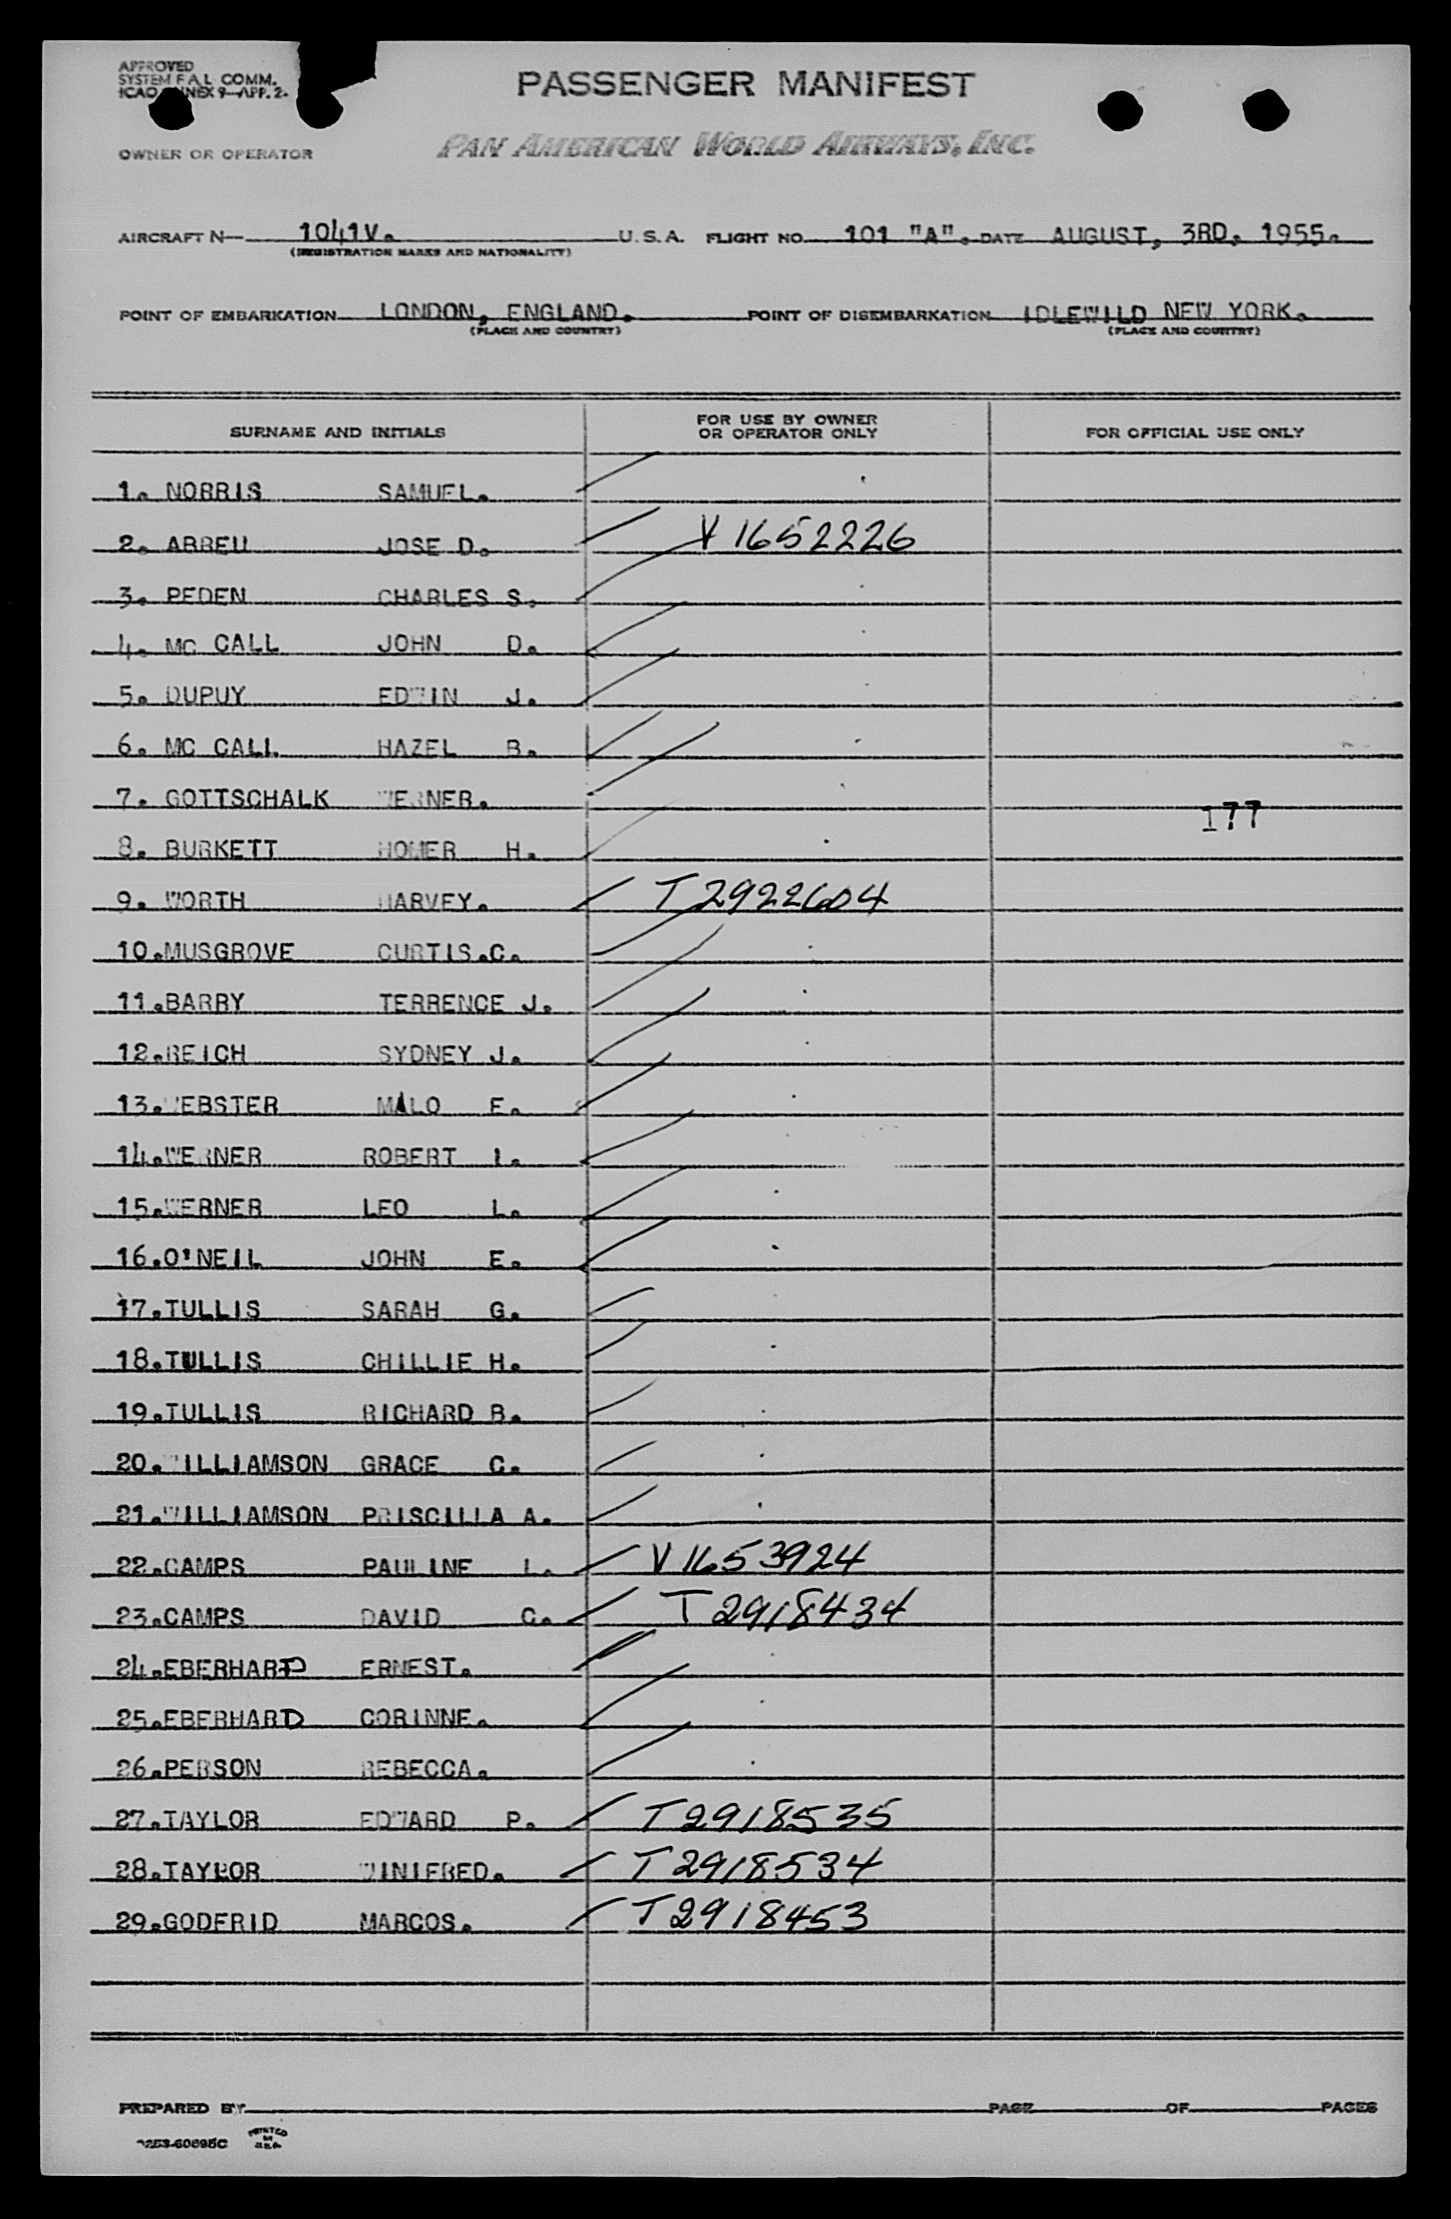 APPROVED
SYSTEM F A L COMM.
ICAO ANNEX 9—APP. 2.
PASSENGER MANIFEST
OWNER OR OPERATOR PAN AMERICAN WORLD AIRWAYS, INC.
AIRCRAFT N— 1041V. U.S.A. FLIGHT NO. 101 "A". DATE AUGUST, 3RD, 1955.
(REGISTRATION MARKS AND NATIONALITY)
POINT OF EMBARKATION LONDON, ENGLAND. POINT OF DISEMBARKATION IDLEWILD NEW YORK.
(PLACE AND COUNTRY) (PLACE AND COUNTRY)
SURNAME AND INITIALS FOR USE BY OWNER OR OPERATOR ONLY FOR OFFICIAL USE ONLY
1. NORRIS SAMUEL.
2. ABREU JOSE D. V 1652226
3. PEDEN CHARLES S.
4. MC CALL JOHN D.
5. DUPUY EDWIN J.
6. MC CALL HAZEL B.
7. GOTTSCHALK WERNER.
177
8. BURKETT HOMER H.
9. WORTH HARVEY. T 2922604
10.MUSGROVE CURTIS.C.
11.BARRY TERRENCE J.
12.REICH SYDNEY J.
13.WEBSTER MALO E.
14.WERNER ROBERT I.
15.WERNER LEO L.
16.O'NEIL JOHN E.
17.TULLIS SARAH G.
18.TULLIS CHILLIE H.
19.TULLIS RICHARD B.
20.WILLIAMSON GRACE C.
21.WILLIAMSON PRISCILLA A.
22.CAMPS PAULINE L. V 1653924
23.CAMPS DAVID C. T 2918434
24.EBERHARD ERNEST.
25.EBERHARD CORINNE.
26.PERSON REBECCA.
27.TAYLOR EDWARD P. T 2918535
28.TAYLOR WINIFRED. T 2918534
29.GODFRID MARCOS. T 2918453
PREPARED BY PAGE OF PAGES
PRINTED
IN
U.S.A.